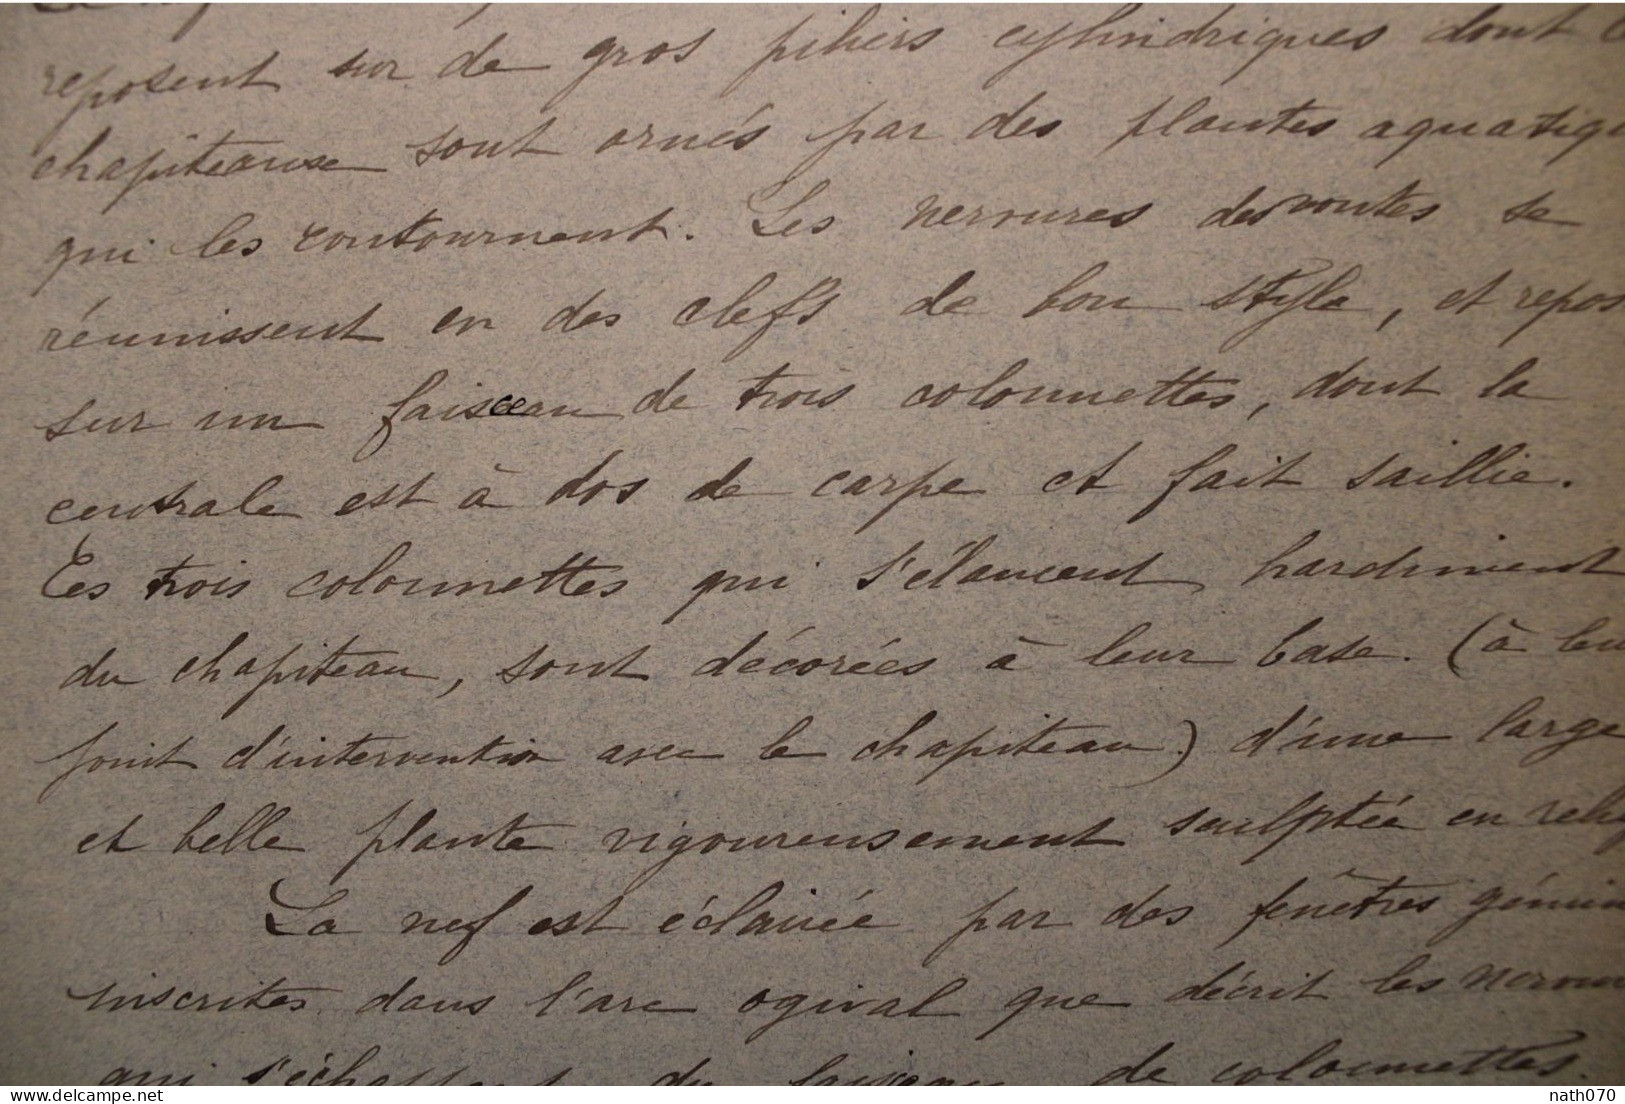 reposent sur de gros piliers cylindriques dont
chapiteaux sont ornés par des plantes aquatiqu
qui les contournent. Les nervures des voutes se
réunissent en des clefs de bon style, et repos
sur un faisceau de trois colonnettes, dont la
centrale est à dos de carpe et fait saillie.
Ces trois colonnettes qui s'élancent hardiment
du chapiteau, sont décorées à leur base. (à leu
point d'intervention avec le chapiteau) d'une large
et belle plante vigoureusement sculptée en reli
La nef est éclairée par des fenêtres gémin
inscrites dans l'arc ogival que décrit les nervur
qui s'échappent du faisceau de colonnettes.
delcampe.net
nath070